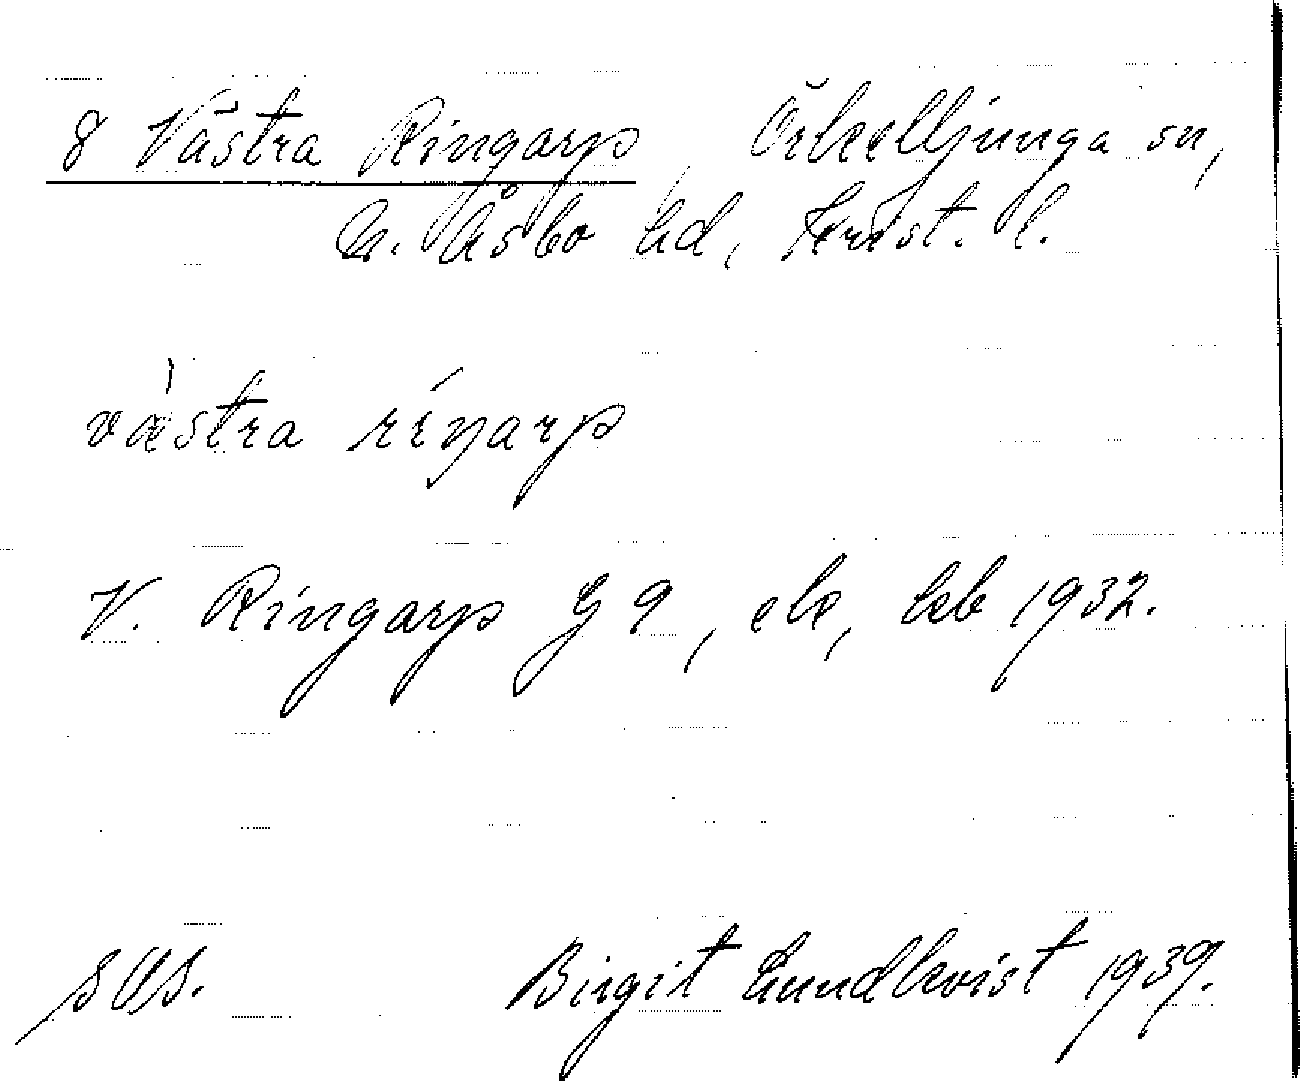 8 Västra Ringarp, Örkelljunga sn,
N. Åsbo hd, Krist. l.
v̀æstra ríŋarp
V. Ringarp G 9, ek, kb 1932.
SOS.
Birgit Lundkvist 1939.